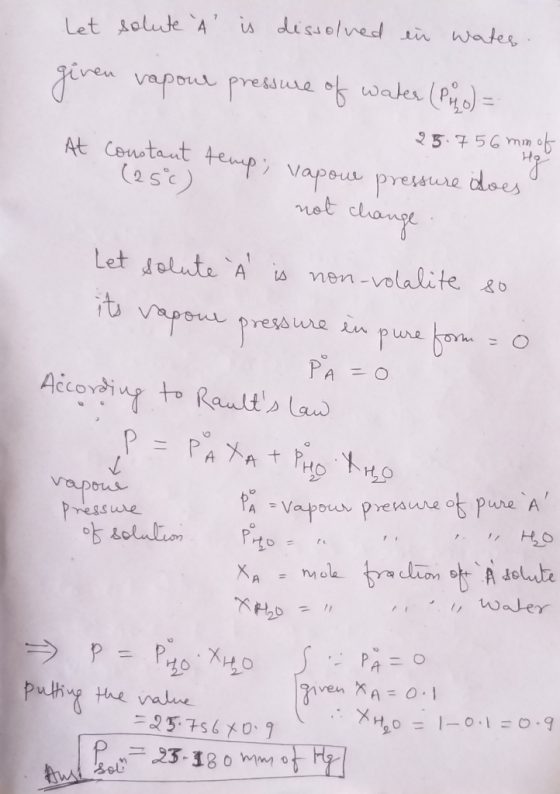 Let solute 'A' is dissolved in water.
given vapour pressure of water (P°H₂O) =
23.756 mm of Hg
At constant temp; vapour pressure does
(25°c)
not change.
Let solute 'A' is non-volalite so
its vapour pressure in pure form = 0
P°A = 0
According to Rault's law
P = P°A XA + P°H₂O · XH₂O
↓
vapour
pressure
of solution
P°A = vapour pressure of pure 'A'
P°H₂O = " " " " H₂O
XA = mole fraction of 'A' solute
XH₂O = " " " " water
⇒ P = P°H₂O · XH₂O
{ ∵ P°A = 0
given XA = 0.1
∴ XH₂O = 1-0.1 = 0.9
Putting the value
= 23.756 × 0.9
Ans: Psolⁿ = 23.380 mm of Hg